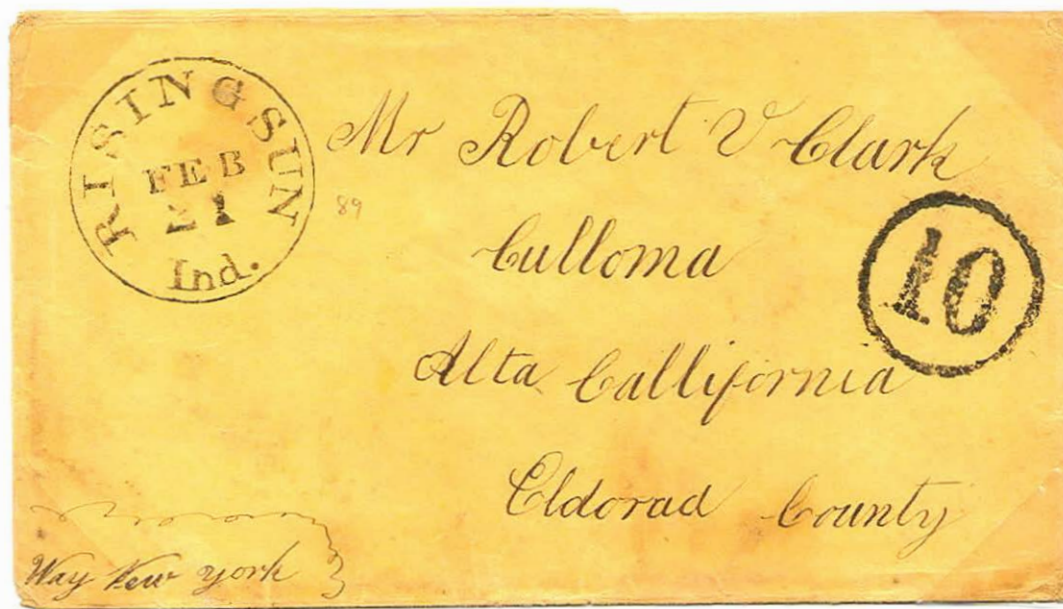 RISING SUN
FEB
21
Ind.
Mr Robert V Clark
89
Culloma
10
Alta Callifornia
Eldorad County
Way New york